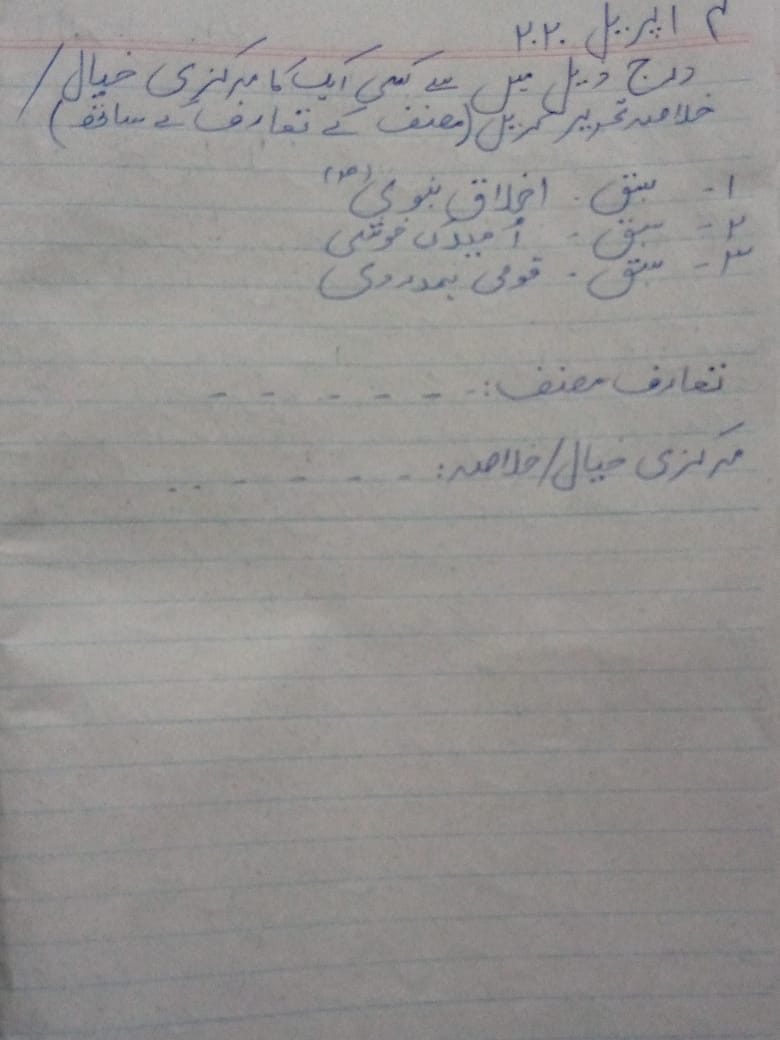 ۴ اپریل ۲۰۲۰
درج ذیل میں سے کسی ایک کا مرکزی خیال /
خلاصہ تحریر کریں (مصنف کے تعارف کے ساتھ)
۱- سبق - اخلاق نبوی (ص)
۲- سبق - اُمید کی خوشی
۳- سبق - قومی ہمدردی
تعارف مصنف :- - - - - -
مرکزی خیال/خلاصہ: - - - - - - -